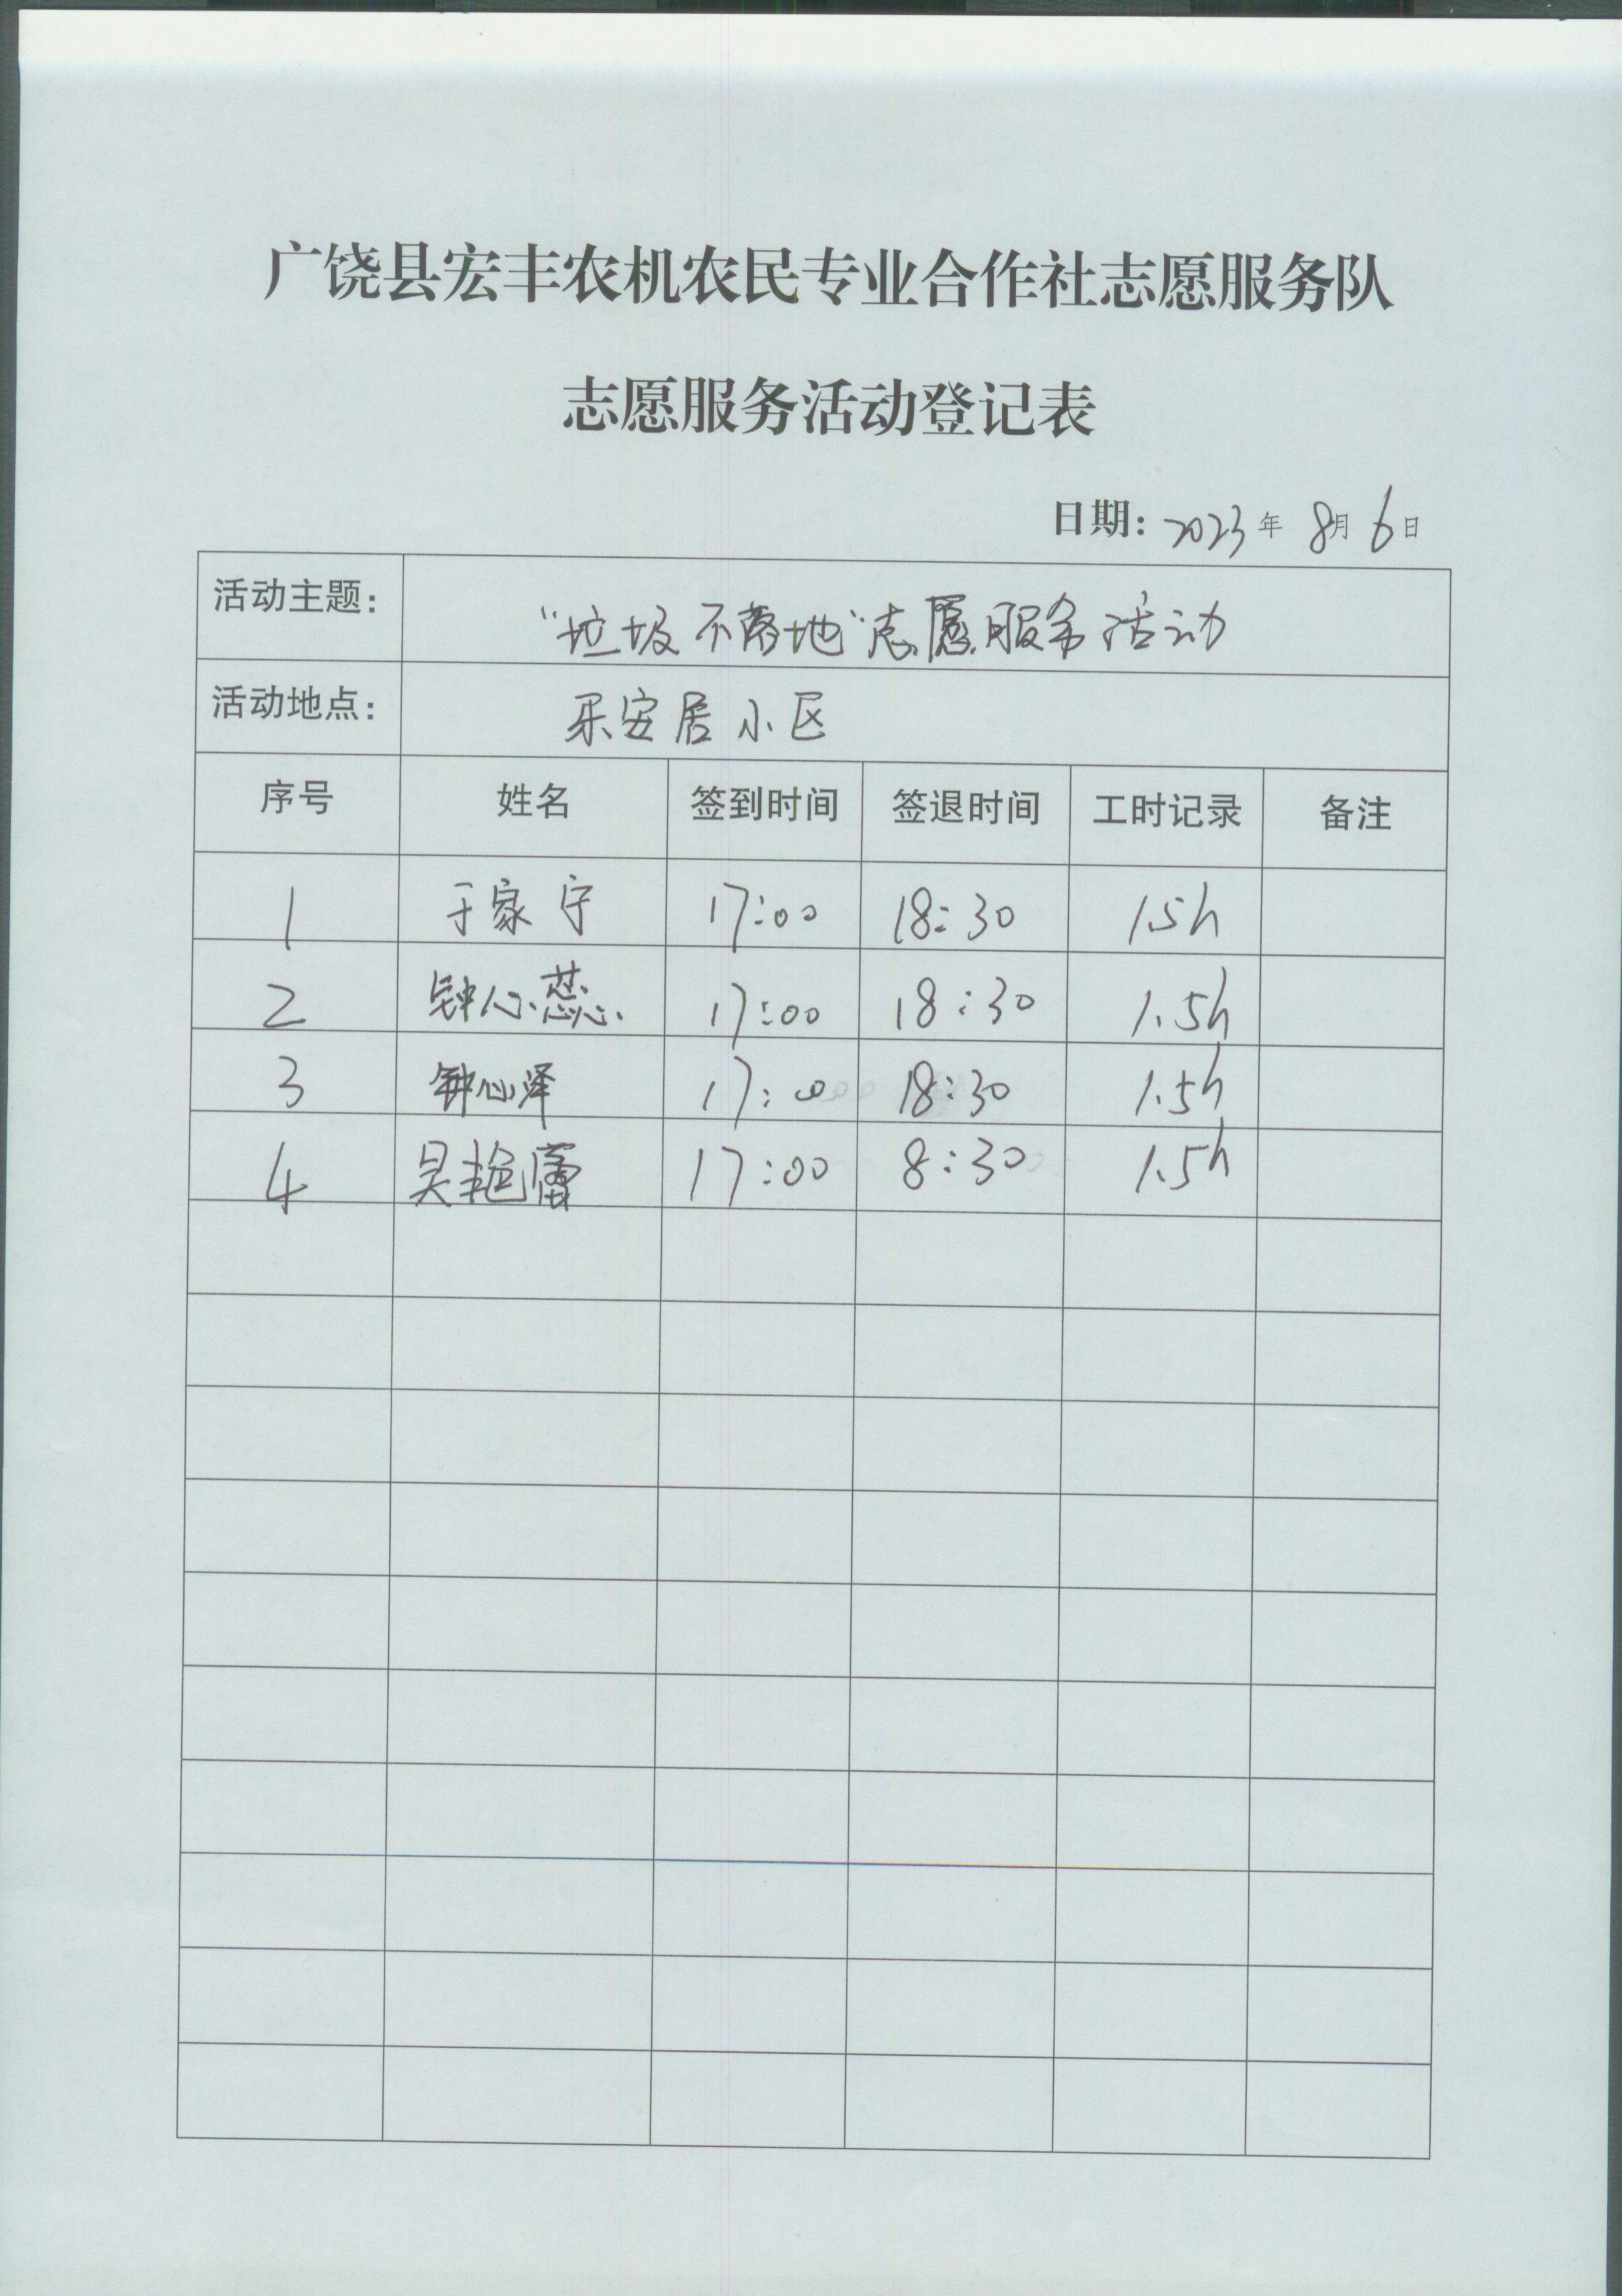 广饶县宏丰农机农民专业合作社志愿服务队
志愿服务活动登记表
日期: 2023年 8月 6日
活动主题: “垃圾不落地”志愿服务活动
活动地点: 乐安居小区
序号 姓名 签到时间 签退时间 工时记录 备注
1 于家宁 17:00 18:30 1.5h
2 钟心蕊 17:00 18:30 1.5h
3 钟心泽 17:00 18:30 1.5h
4 吴艳蕾 17:00 8:30 1.5h